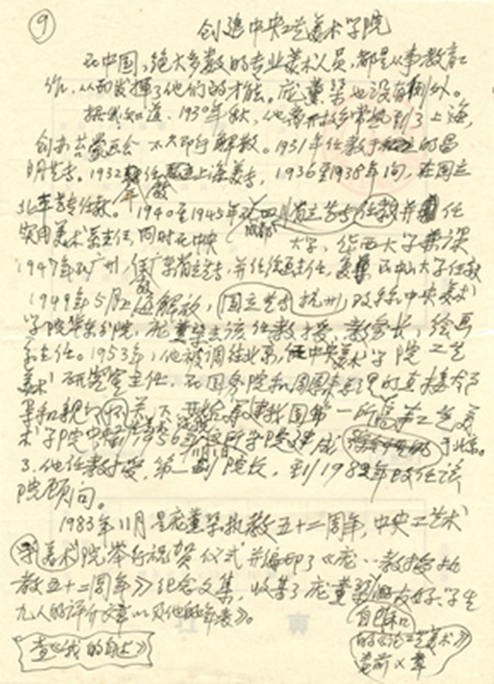 ⑨ 创建中央工艺美术学院
在中国,绝大多数的专业美术人员,都是从事教育工
作,从而发挥了他们的才能。庞薰琹也没有例外。
据我知道:1930年秋,他离开故乡常熟到了上海,
创办苔蒙画会 不久即行解散。1931年任教于 的昌
明艺专。1932年任教 上海美专,1936至1938年间,在国立
北平艺专任教。1940至1945年 四川省立艺专任教并 任
实用美术系主任,同时在中央 大学、华西大学兼课
1947年以广州,任广东省立艺专,并任绘画系主任,兼 在中山大学任教
1949年5月上海解放,国立艺专 杭州,改称中央美术
学院华东分院,庞薰琹在该任教授、教务长,绘画
系主任。1953年,他被调往北京,任中央美术学院工艺
美术研究室主任,在国务院和周恩来总理的直接领
导和亲切关怀下, 筹建我国第一所高等工艺美
术学院 1956 这所学院建成 于北京。
了,他任教授,第一副院长,到1982年改任该
院顾问。
1983年11月是庞薰琹执教五十二周年,中央工艺术
美术院举行祝贺仪式并编印了《庞··教授执
教五十二周年》纪念文集,收集了庞薰琹 友好、学生
九人的评介文章以及他的年表》。
自己和
查《我的自述》
的《论工艺美术》
等前×章